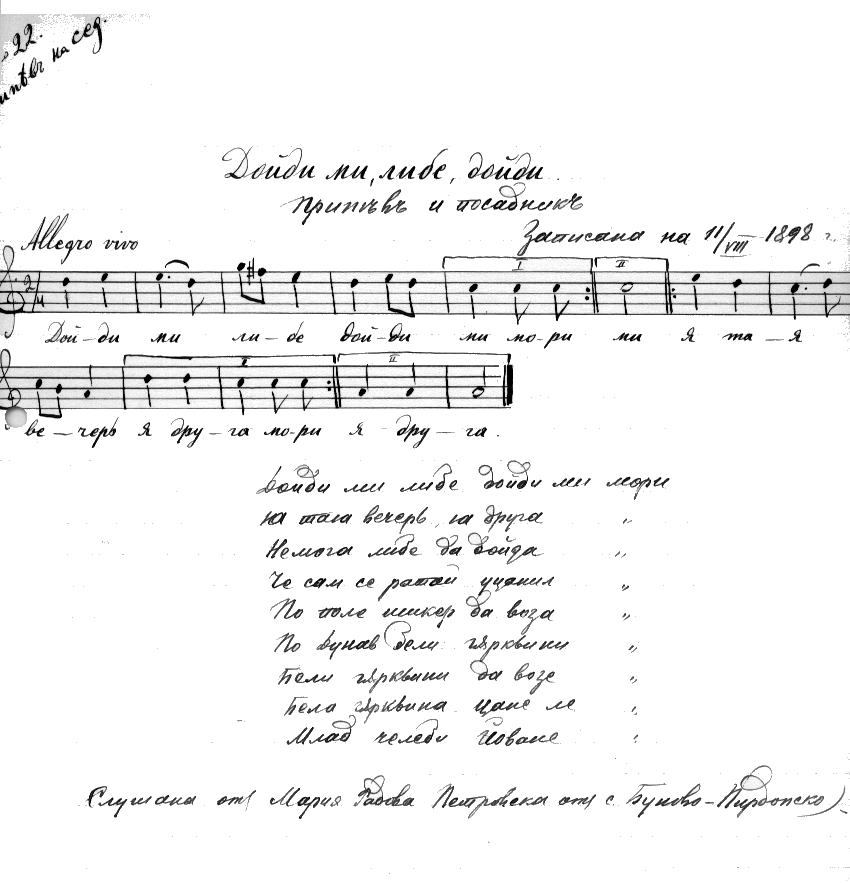 22.
на сед.
Дойди ми, либе, дойди
Припѣвъ и посадникъ
Allegro vivo
Записана на 11/VIII 1898 г.
I II
Дой-ди ми ли-бе дой-ди ми мо-ри ми я та-я
I II
ве-черь я дру-га мо-ри я дру-га.
Дойди ми либе дойди ми мори
на тая вечерь, на друга "
Немога либе да дойда "
Че сам се ратай уценил "
По поле шикер да воза "
По Дунав бели гяркини "
Бели гярквини да возе "
Бела гярквина цане ле "
Млад челеби Йоване "
Слушана отъ Мария Радова Петровска отъ с. Буново-Пирдопско)